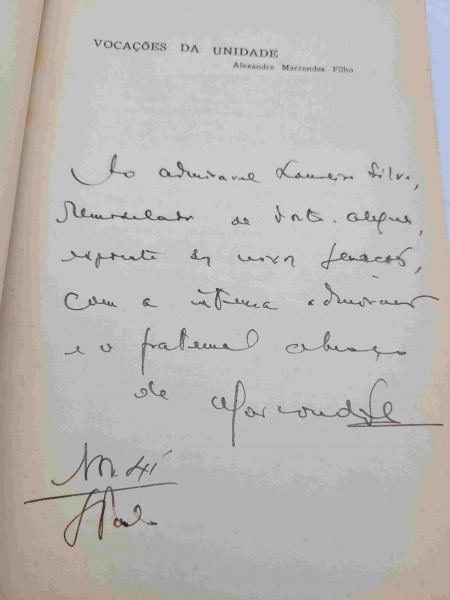 VOCAÇÕES DA UNIDADE
Alexandre Marcondes Filho
Ao admiravel Loureiro Silva,
Remodelador de Porto Alegre,
expoente da nova geração,
com a intensa admiração
e o fraternal abraço
de Marcondes Fº
S. Paulo